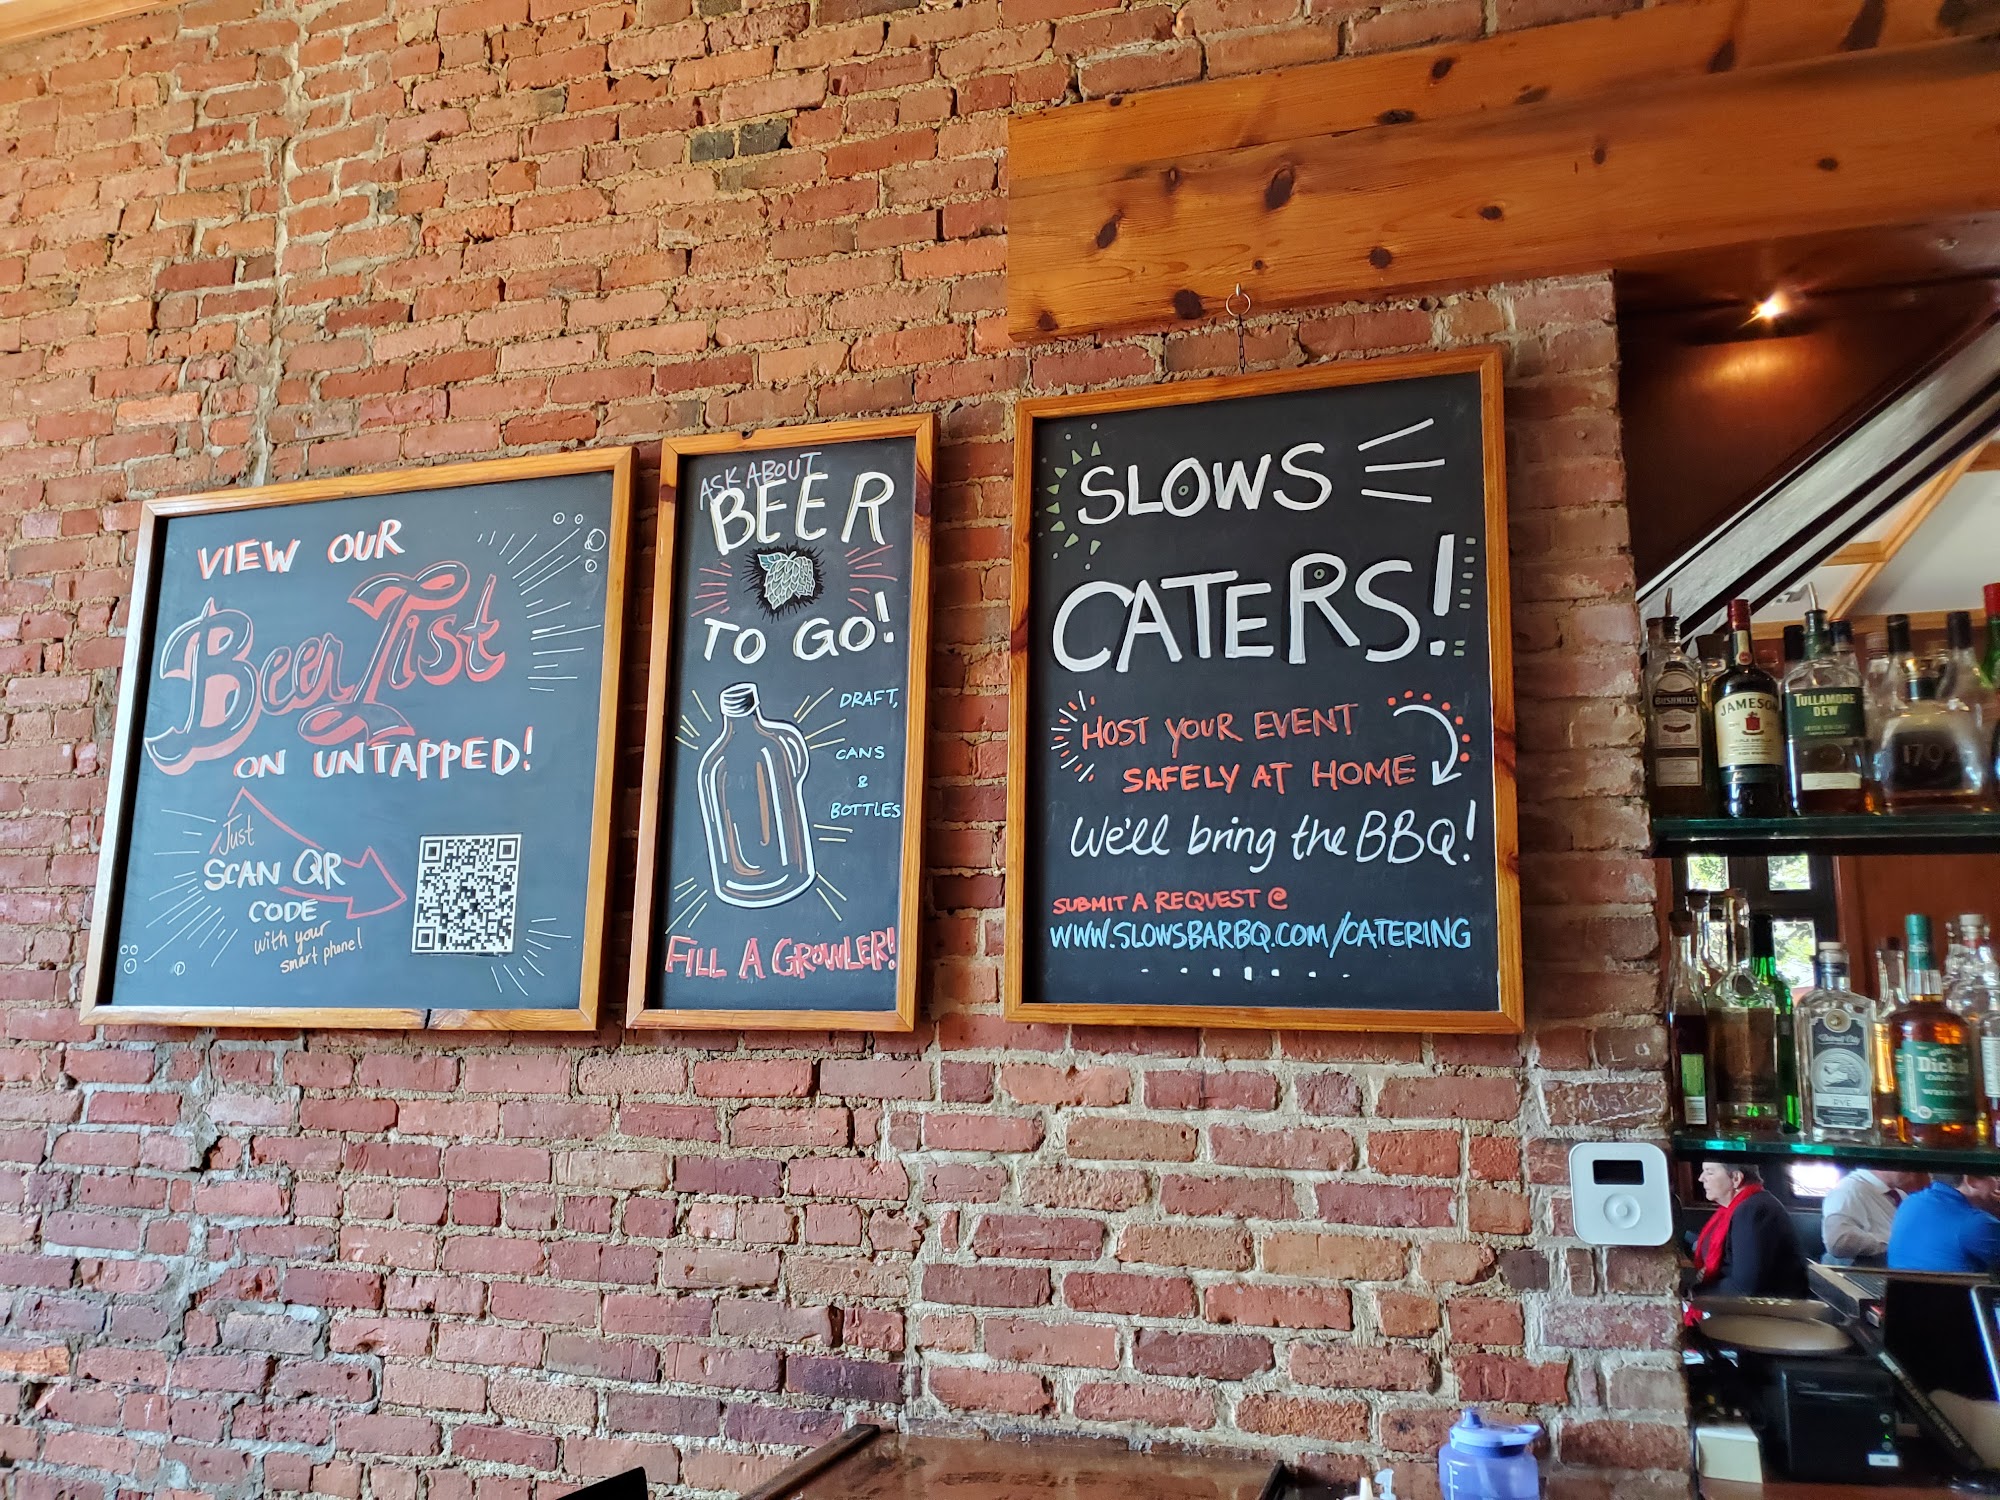 VIEW OUR
Beer List
ON UNTAPPED!
Just
SCAN QR
CODE
with your
smart phone!
ASK ABOUT
BEER
TO GO!
DRAFT,
CANS
&
BOTTLES
FILL A GROWLER!
SLOWS
CATERS!
HOST YOUR EVENT
SAFELY AT HOME
We'll bring the BBQ!
SUBMIT A REQUEST @
WWW.SLOWSBARBQ.COM/CATERING
BUSHMILLS
JAMESON
TULLAMORE
DEW
1792
RYE
Dickel